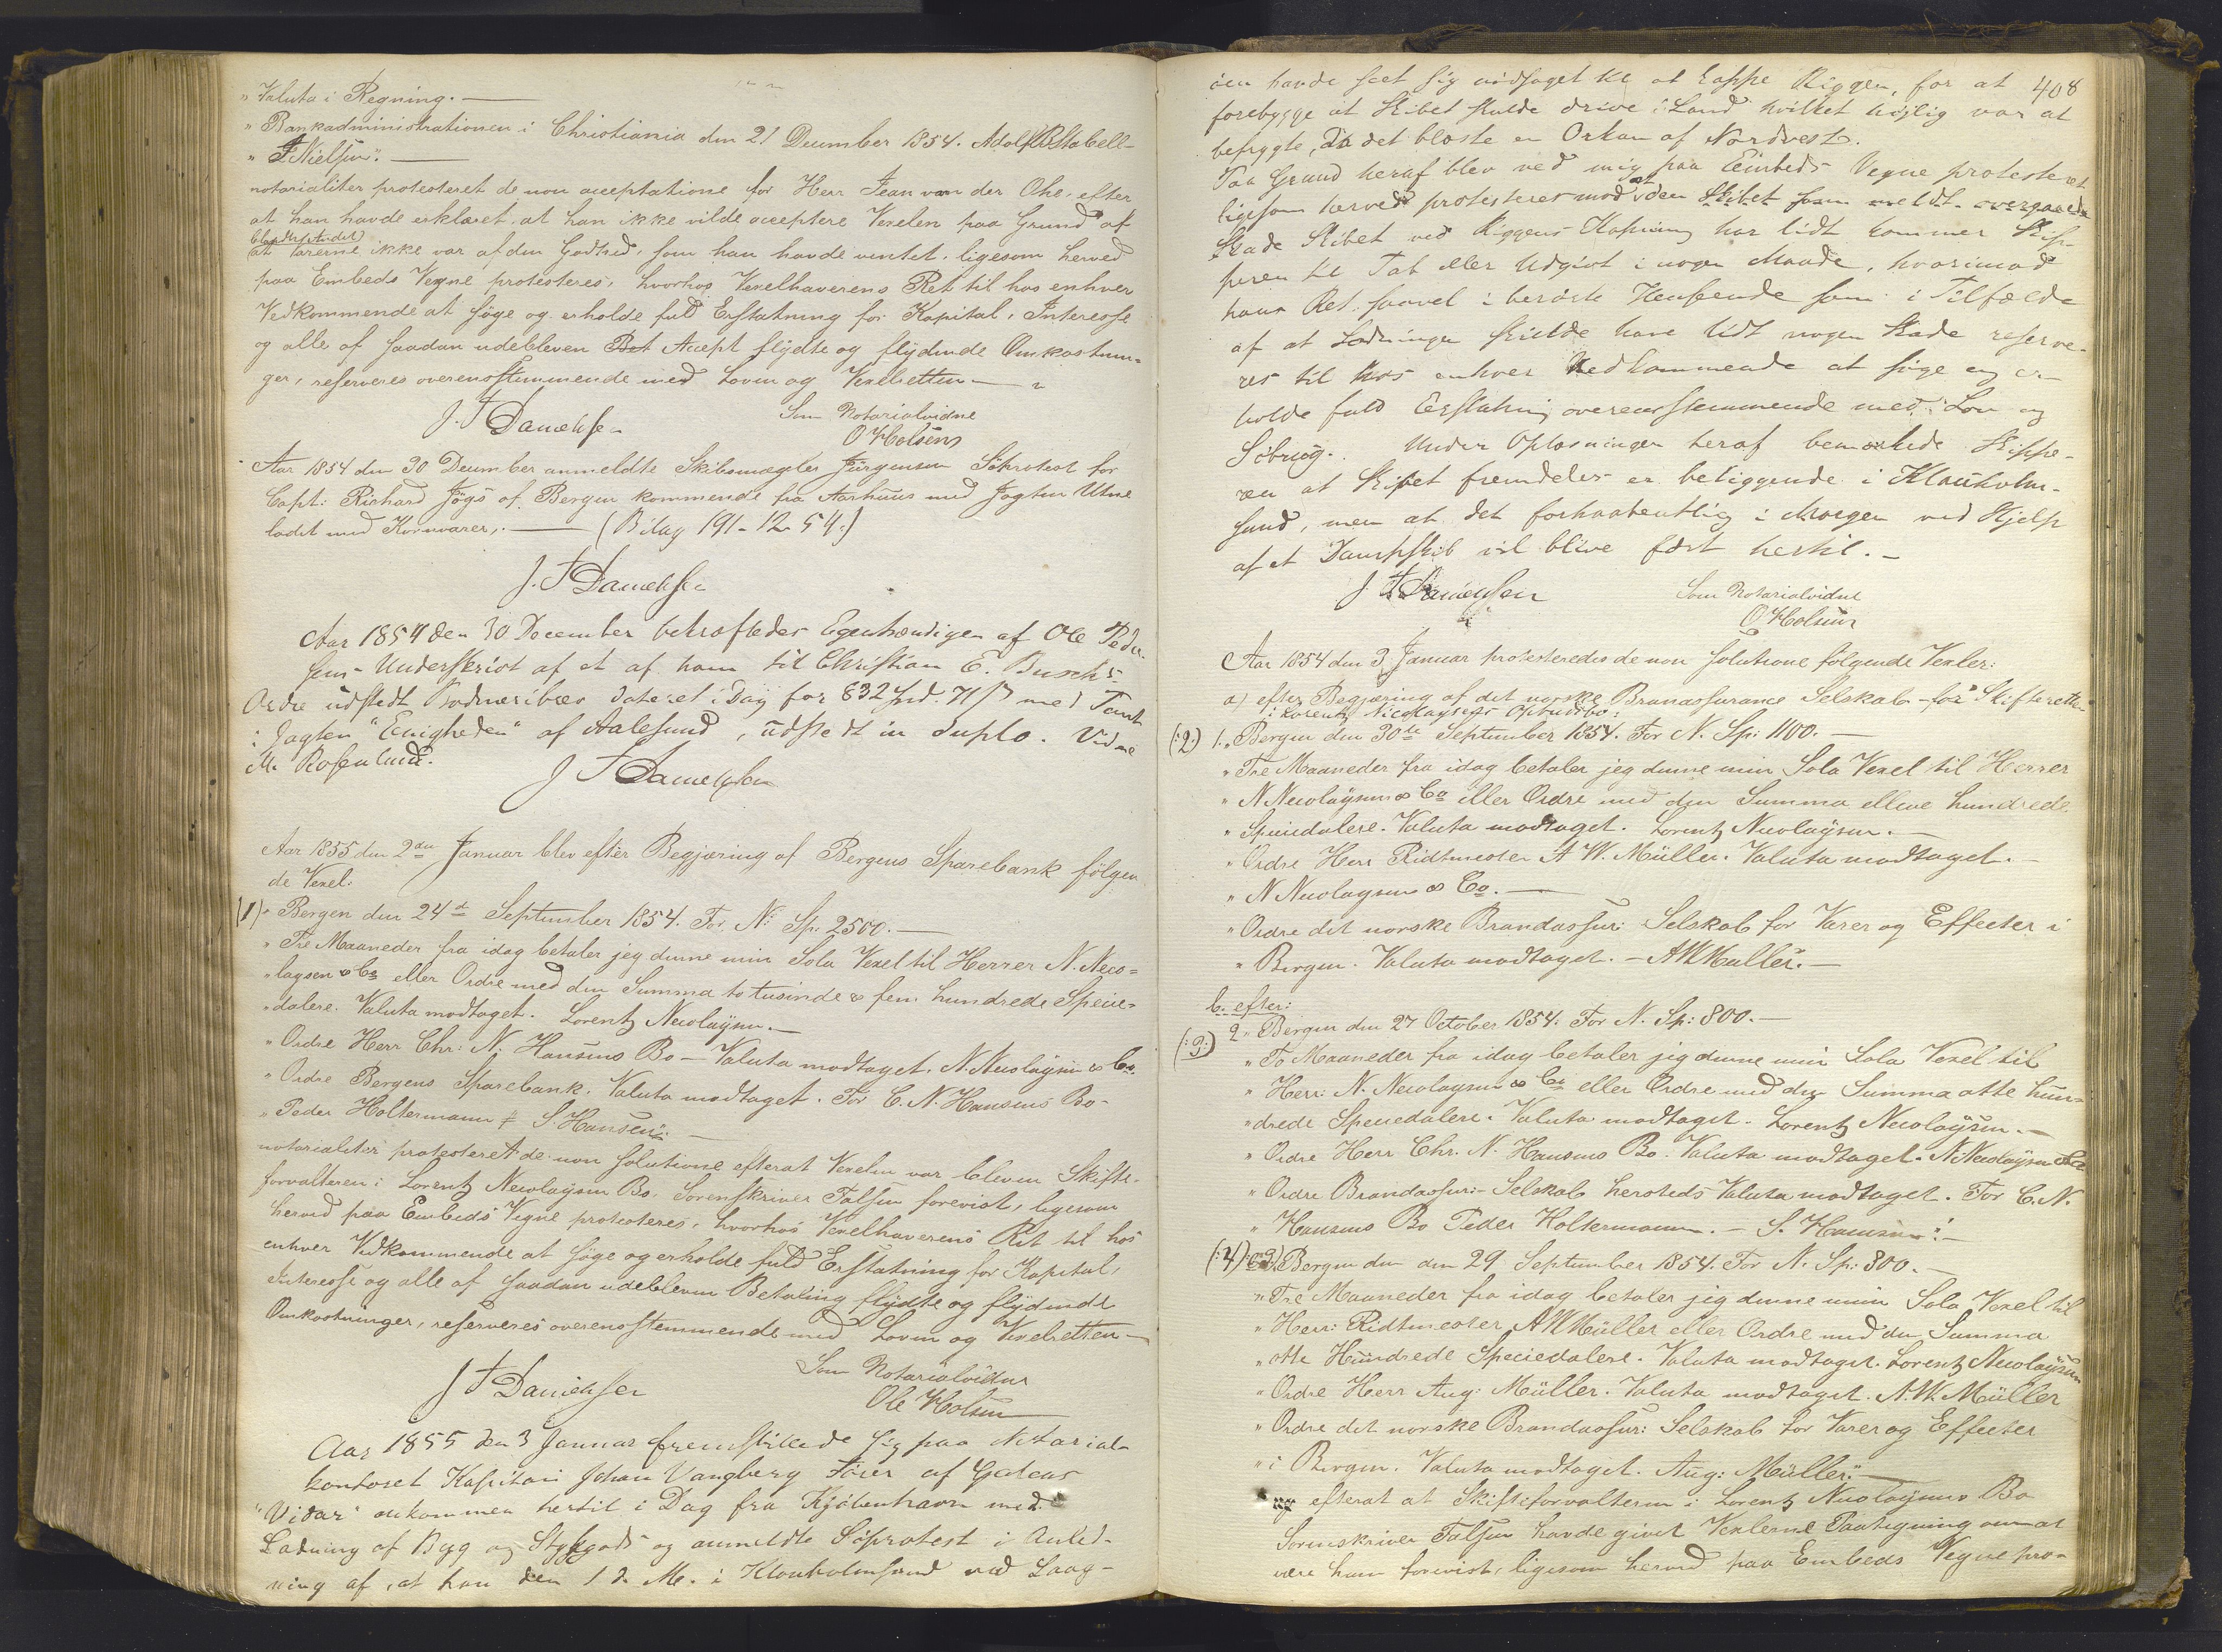 "Valuta i Regning. —
"Bankadministrationen i Christiania den 21 December 1854. Adolf
"F Nielsen". —
notarialiter protesteret de non acceptatione for Herr Jean von der Ohe, efter
at han havde erklæret at han ikke vilde acceptere Vexelen paa Grund af
at Varerne ikke var af den Godhed, som han havde ventet, ligesom herved
paa Embeds Vegne protesteres, hvorhos Vexelhaverens Ret til hos enhver
Vedkommende at söge og erholde fuld Erstatning for Kapital, Interesse
og alle af saadan udebleven Bet Accept flydte og flydende Omkostnin=
ger, reserveres overensstemmende med Loven og Vexelretten —
J. F Danielssen Som Notarialvidne
O Holsen
Aar 1854 den 30 December anmeldte Skibsmægler Jürgensen Söprotest for
Capt: Richard Jögs af Bergen kommende fra Aarhuus med Jagten Utne
ladet med Kornvarer, — (Bilag 191-12-54.)
J. F Danielssen
Aar 1854 den 30 December bekræftedes Egenhændigen af Ole Peder
sens Underskrivt af et af ham til Christian E. Busch's
Ordre udstedt Bodmeribrev dateret i Dag for 832 Spd. 71 ß med Pant
i Jagten "Enigheden" af Aalesund, udstedt in duplo. Vidne
M. Rosenlund.
J F Danielssen
Aar 1855 den 2den Januar blev efter Begjæring af Bergens Sparebank fölgen
de Vexel:
(1) "Bergen den 24de September 1854. For N: Sp. 2500. —
"Tre Maaneder fra idag betaler jeg denne min Sola Vexel til Herrer N. Nico=
"laysen & Co eller Ordre med den Summa to tusinde & fem hundrede Specie=
"dalere. Valuta modtaget. Lorentz Nicolaysen. —
"Ordre Herr Chr: N. Hansens Bo — Valuta modtaget. N. Nicolaysen & Co.
"Ordre Bergens Sparebank. Valuta modtaget. For C. N. Hansens Bo-
"Peder Holtermann # S. Hansen". —
notarialiter protesteret de non solutione efterat Vexelen var bleven Skifte-
forvalteren i Lorentz Nicolaysens Bo, Sorenskriver Falsen forevist, ligesom
herved paa Embeds Vegne protesteres, hvorhos Vexelhaverens Ret til hos
enhver Vedkommende at söge og erholde fuld Erstatning for Kapital,
Interesse og alle af saadan udebleven Betaling flydte og flydende
Omkostninger, reserveres overensstemmende med Loven og Vexelretten —
J F Danielssen Som Notarialvidne
Ole Holsen
Aar 1855 den 3 Januar fremstillede sig paa Notarial-
kontoret Kapitain Johan Vangberg Förer af Galeas
"Vidar" ankommen hertil i Dag fra Kjöbenhavn med
Ladning af Byg og Stykgods og anmeldte Söprotest i Anled-
ning af, at han den 1 d. M. i Klauholmsund ved Laag-
öen havde seet sig nödsaget til at kappe Riggen, for at 408
forebygge at Skibet skulde drive i Land hvilket nöylig var at
befrygte, da det blæste en Orkan af Nordvest.
Paa Grund heraf blev ved mig paa Embeds Vegne protesteret
ligesom herved protesteres mod at den Skibet som meldt overgaaede
Skade Skibet ved Riggens Kapning har lidt kommer Skip-
peren til Tab eller Udgivt i nogen Maade, hvorimod
hans Ret saavel i berörte Henseende som i Tilfælde
af at Ladningen skulde have lidt nogen Skade reserve-
res til hos enhver Vedkommende at söge og er-
holde fuld Erstatning overensstemmende med Lov og
Söbrug. Under Oplæsningen heraf bemærkede Skippe-
ren at Skibet fremdeles er beliggende i Klauholm-
sund, men at det forhaabentlig i Morgen ved Hjelp
af et Dampskib vil blive fört hertil. —
J F Danielssen Som Notarialvidne
O Holsen
Aar 1854 den 3 Januar protesteredes de non solutione fölgende Vexler:
a) efter Begjæring af det norske Brandassurance Selskab - for Skifteretten
i Lorentz Nicolaysens Opbudsbo:
(:2) 1. "Bergen den 30te September 1854. For N. Sp: 1100. —
"Tre Maaneder fra idag betaler jeg denne min Sola Vexel til Herrer
"N Nicolaysen & Co eller Ordre med den Summa elleve hundrede
"Speciedalere. Valuta modtaget. Lorentz Nicolaysen. —
"Ordre Herr Ridtmester A W. Müller. Valuta modtaget. —
"N Nicolaysen & Co. —
"Ordre det norske Brandassur: Selskab for Varer og Effecter i
"Bergen. Valuta modtaget. — A W Müller. —
b. efter:
(:3:) 2 "Bergen den 27 October 1854: For N. Sp: 800. —
"To Maaneder fra idag betaler jeg denne min Sola Vexel til
"Herr: N. Nicolaysen & Co eller Ordre med den Summa otte hun=
"drede Speciedalere. Valuta modtaget. Lorentz Nicolaysen. —
"Ordre Herr Chr. N. Hansens Bo. Valuta modtaget. N Nicolaysen & Co
"Ordre Brandassur:- Selskab hersteds Valuta modtaget. For C. N.
"Hansens Bo Peder Holtermann. — S. Hansen". —
(:4): Bergen den den 29 September 1854. For N. Sp: 800. —
"Tre Maaneder fra idag betaler jeg denne min Sola Vexel til
"Herr: Ridtmester A W Müller eller Ordre med den Summa
"otte Hundrede Speciedalere. Valuta modtaget. Lorentz Nicolaysen
"Ordre Herr Aug: Müller. Valuta modtaget. A. W. Müller
"Ordre det norske Brandassur: Selskab for Varer og Effecter
"i Bergen. Valuta modtaget. Aug: Müller". —
efterat at Skifteforvalteren i Lorentz Nicolaysens Bo
Sorenskriver Falsen havde givet Vexlerne Paategning om at
være ham forevist, ligesom herved paa Embeds Vegne pro-